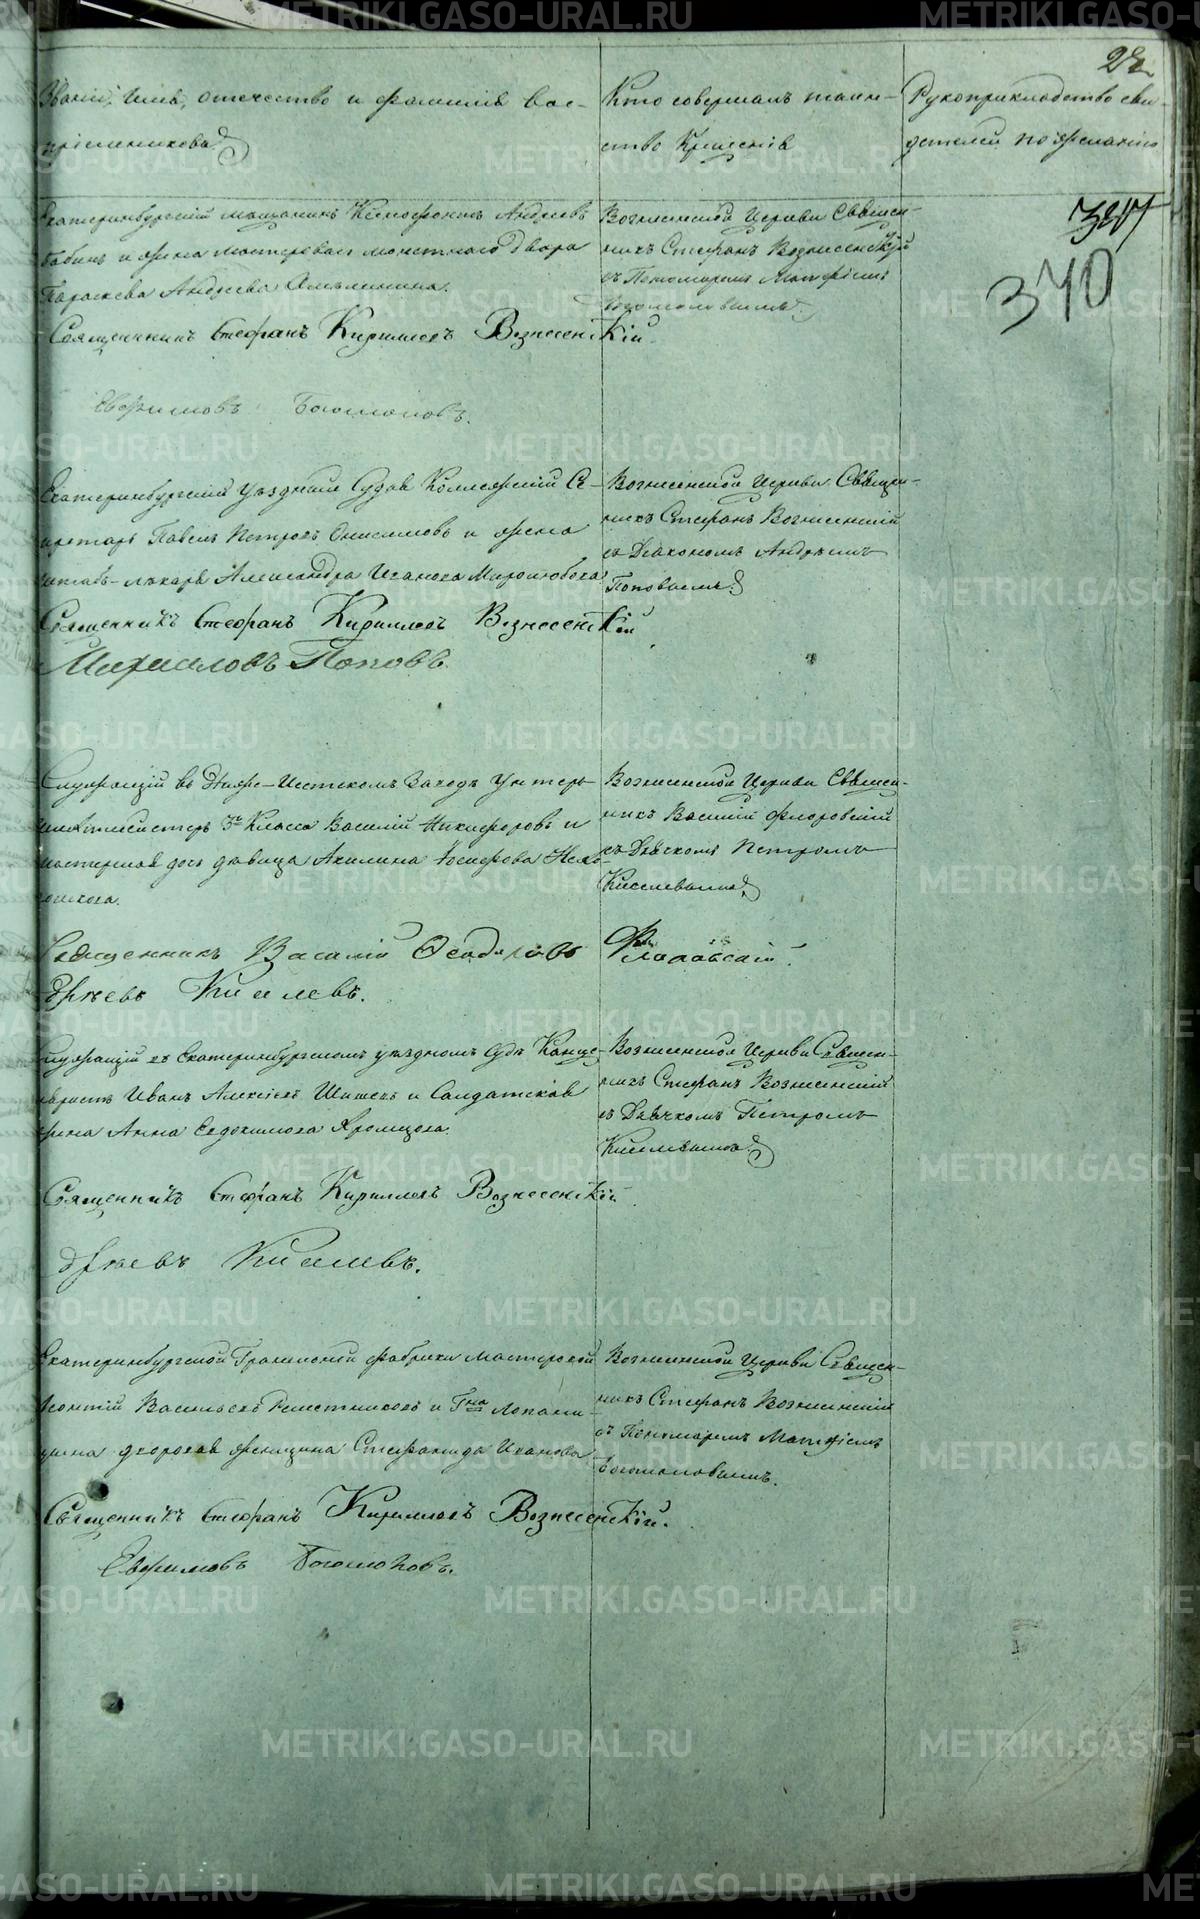 22
Званіе, имя, отечество и фамилія вос-
пріемниковъ
Кто совершалъ таин-
ство Крещенія
Рукоприкладство сви-
детелей по желанію
340
Екатеринбургскій мещанинъ Ксенофонтъ Андреевъ
Бабинъ и жена мастероваго монетнаго двора
Параскева Андреева
Вознесенской Церкви Священ-
никъ Стефанъ Вознесенскій
съ Пономаремъ Матфіемъ
Богомоловымъ
Священникъ Стефанъ Кирилловъ Вознесенскій.
Евфимовъ Богомоловъ.
Екатеринбургскій уезднаго Суда Коллежскій Се-
кретарь Павелъ Петровъ Онисимовъ и жена
штабъ-лекаря Александра Иванова Миролюбова
Вознесенской Церкви Священ-
никъ Стефанъ Вознесенскій
съ Діакономъ Андреемъ
Поповымъ
Священникъ Стефанъ Кирилловъ Вознесенскій
Михаиловъ Поповъ.
Служащій въ Нижне-Исетскомъ Заводе Унтеръ
шихтмейстеръ 3го Класса Василій Никифоровъ и
мастерская дочь девица Акилина Іосифова
Вознесенской Церкви Священ-
никъ Василій Флоровскій
съ Дьячкомъ Петромъ
Киселевымъ
Священникъ Василій Флоровскій.
Киселевъ.
Служащій въ Екатеринбургскомъ уездномъ Суде Канце-
ляристъ Иванъ Алексеевъ Шишевъ и Солдатская
жена Анна Евдокимова
Вознесенской Церкви Священ-
никъ Стефанъ Вознесенскій
съ Дьячкомъ Петромъ
Киселевымъ
Священникъ Стефанъ Кирилловъ Вознесенскій
Киселевъ.
Екатеринбургской Гранильной фабрики мастеровой
Леонтій Васильевъ Решетниковъ и Гна
дворовая женщина Стефанида Иванова
Вознесенской Церкви Священ-
никъ Стефанъ Вознесенскій
съ Пономаремъ Матфіемъ
Богомоловымъ.
Священникъ Стефанъ Кирилловъ Вознесенскій.
Евфимовъ Богомоловъ.
METRIKI.GASO-URAL.RU